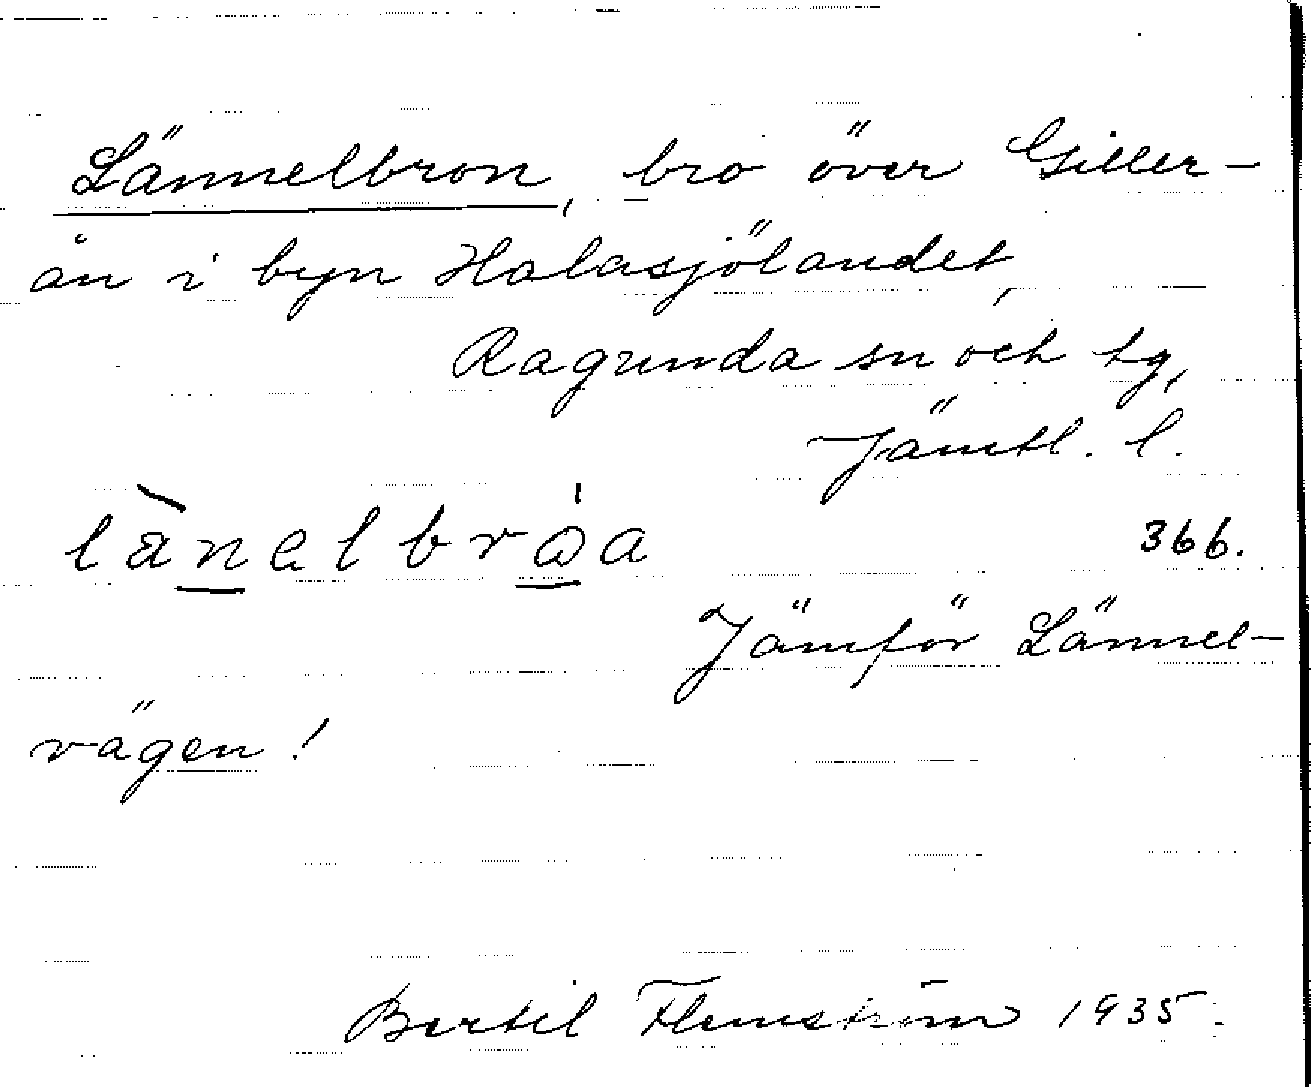 Lännelbron, bro över Giller-
ån i byn Halasjölandet,
Ragunda sn och tg,
Jämtl. l.
lànelbrɷ̀a
366.
Jämför Lännel-
vägen!
Bertil Flemström 1935.